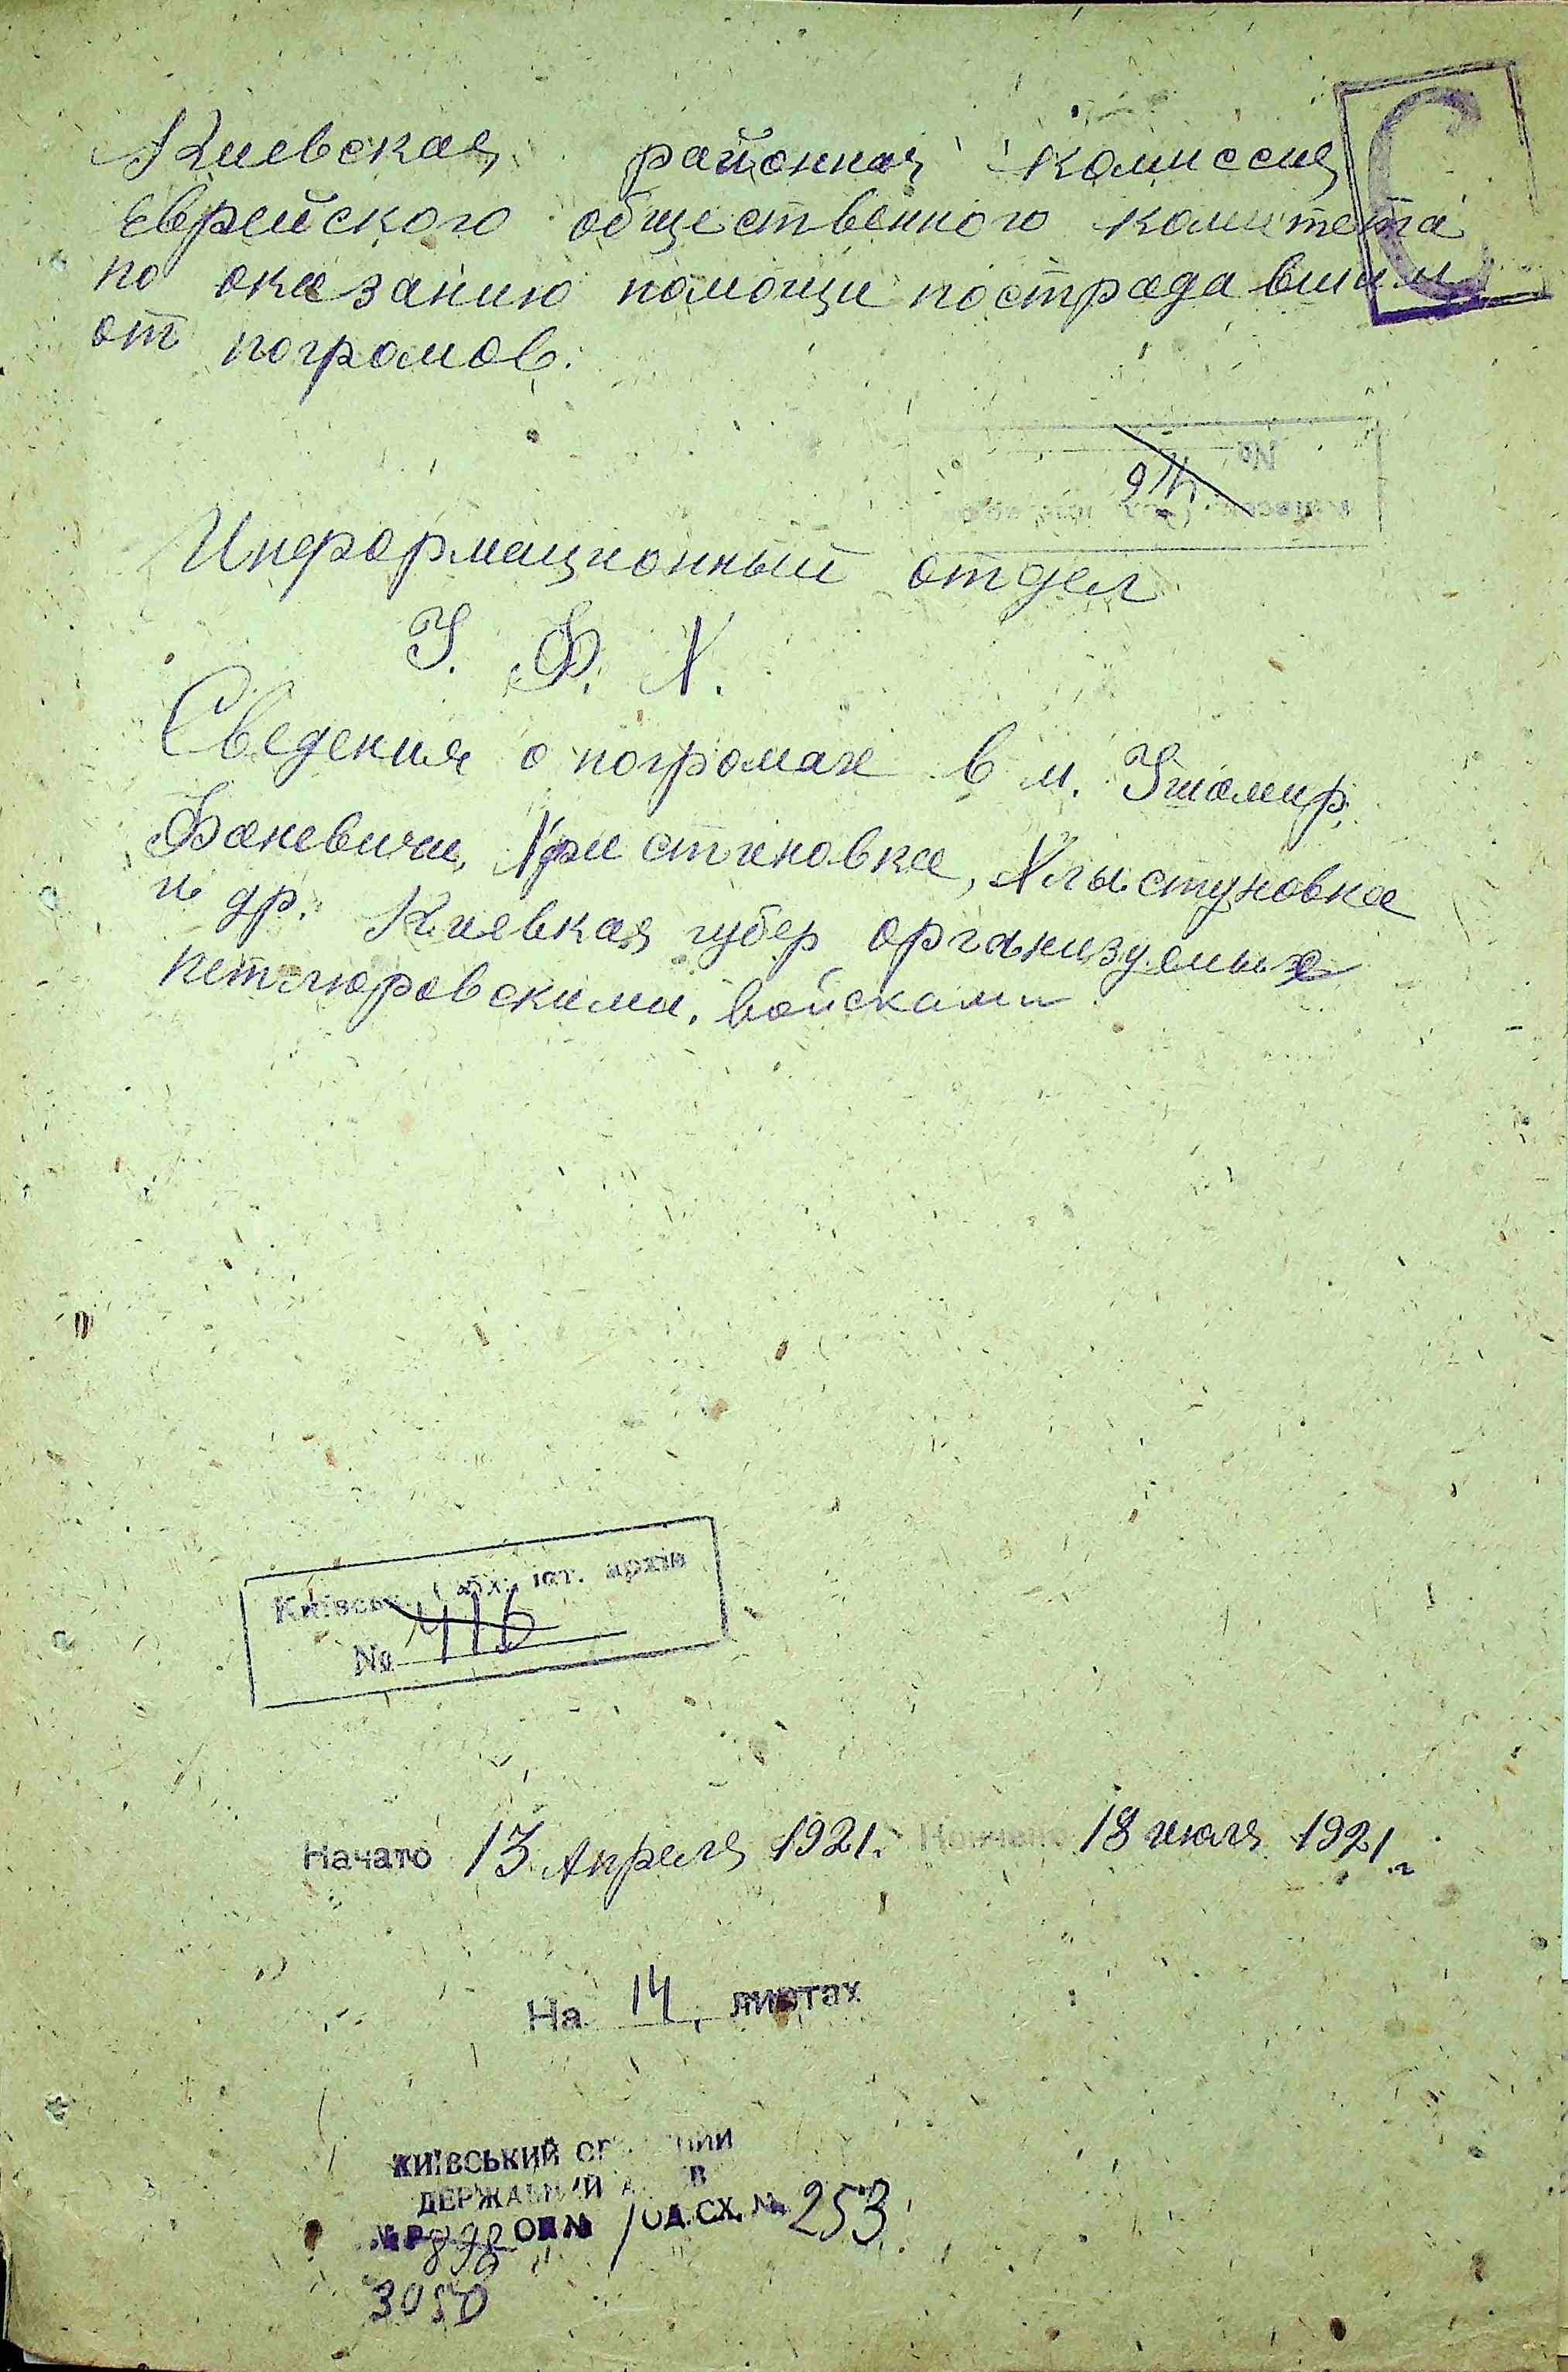 С
Киевская районная комиссия
Еврейского общественного комитета
по оказанию помощи пострадавшим
от погромов.
№ 416
Информационный отдел
У. Ф. Х.
Сведения о погромах в м. Ушомир,
Фаневичи, Христиновка, Хлыстуновка
и др. Киевкая губер организуемые
петлюровскими войсками
Київськ. іст. архів
№ 416
Начато 13 Апреля 1921. Кончено 18 июля 1921 г.
На 14 листах
КИЇВСЬКИЙ
ДЕРЖАВНИЙ
№ Р 898 ОП № 1 ОД.СХ. № 253
3050